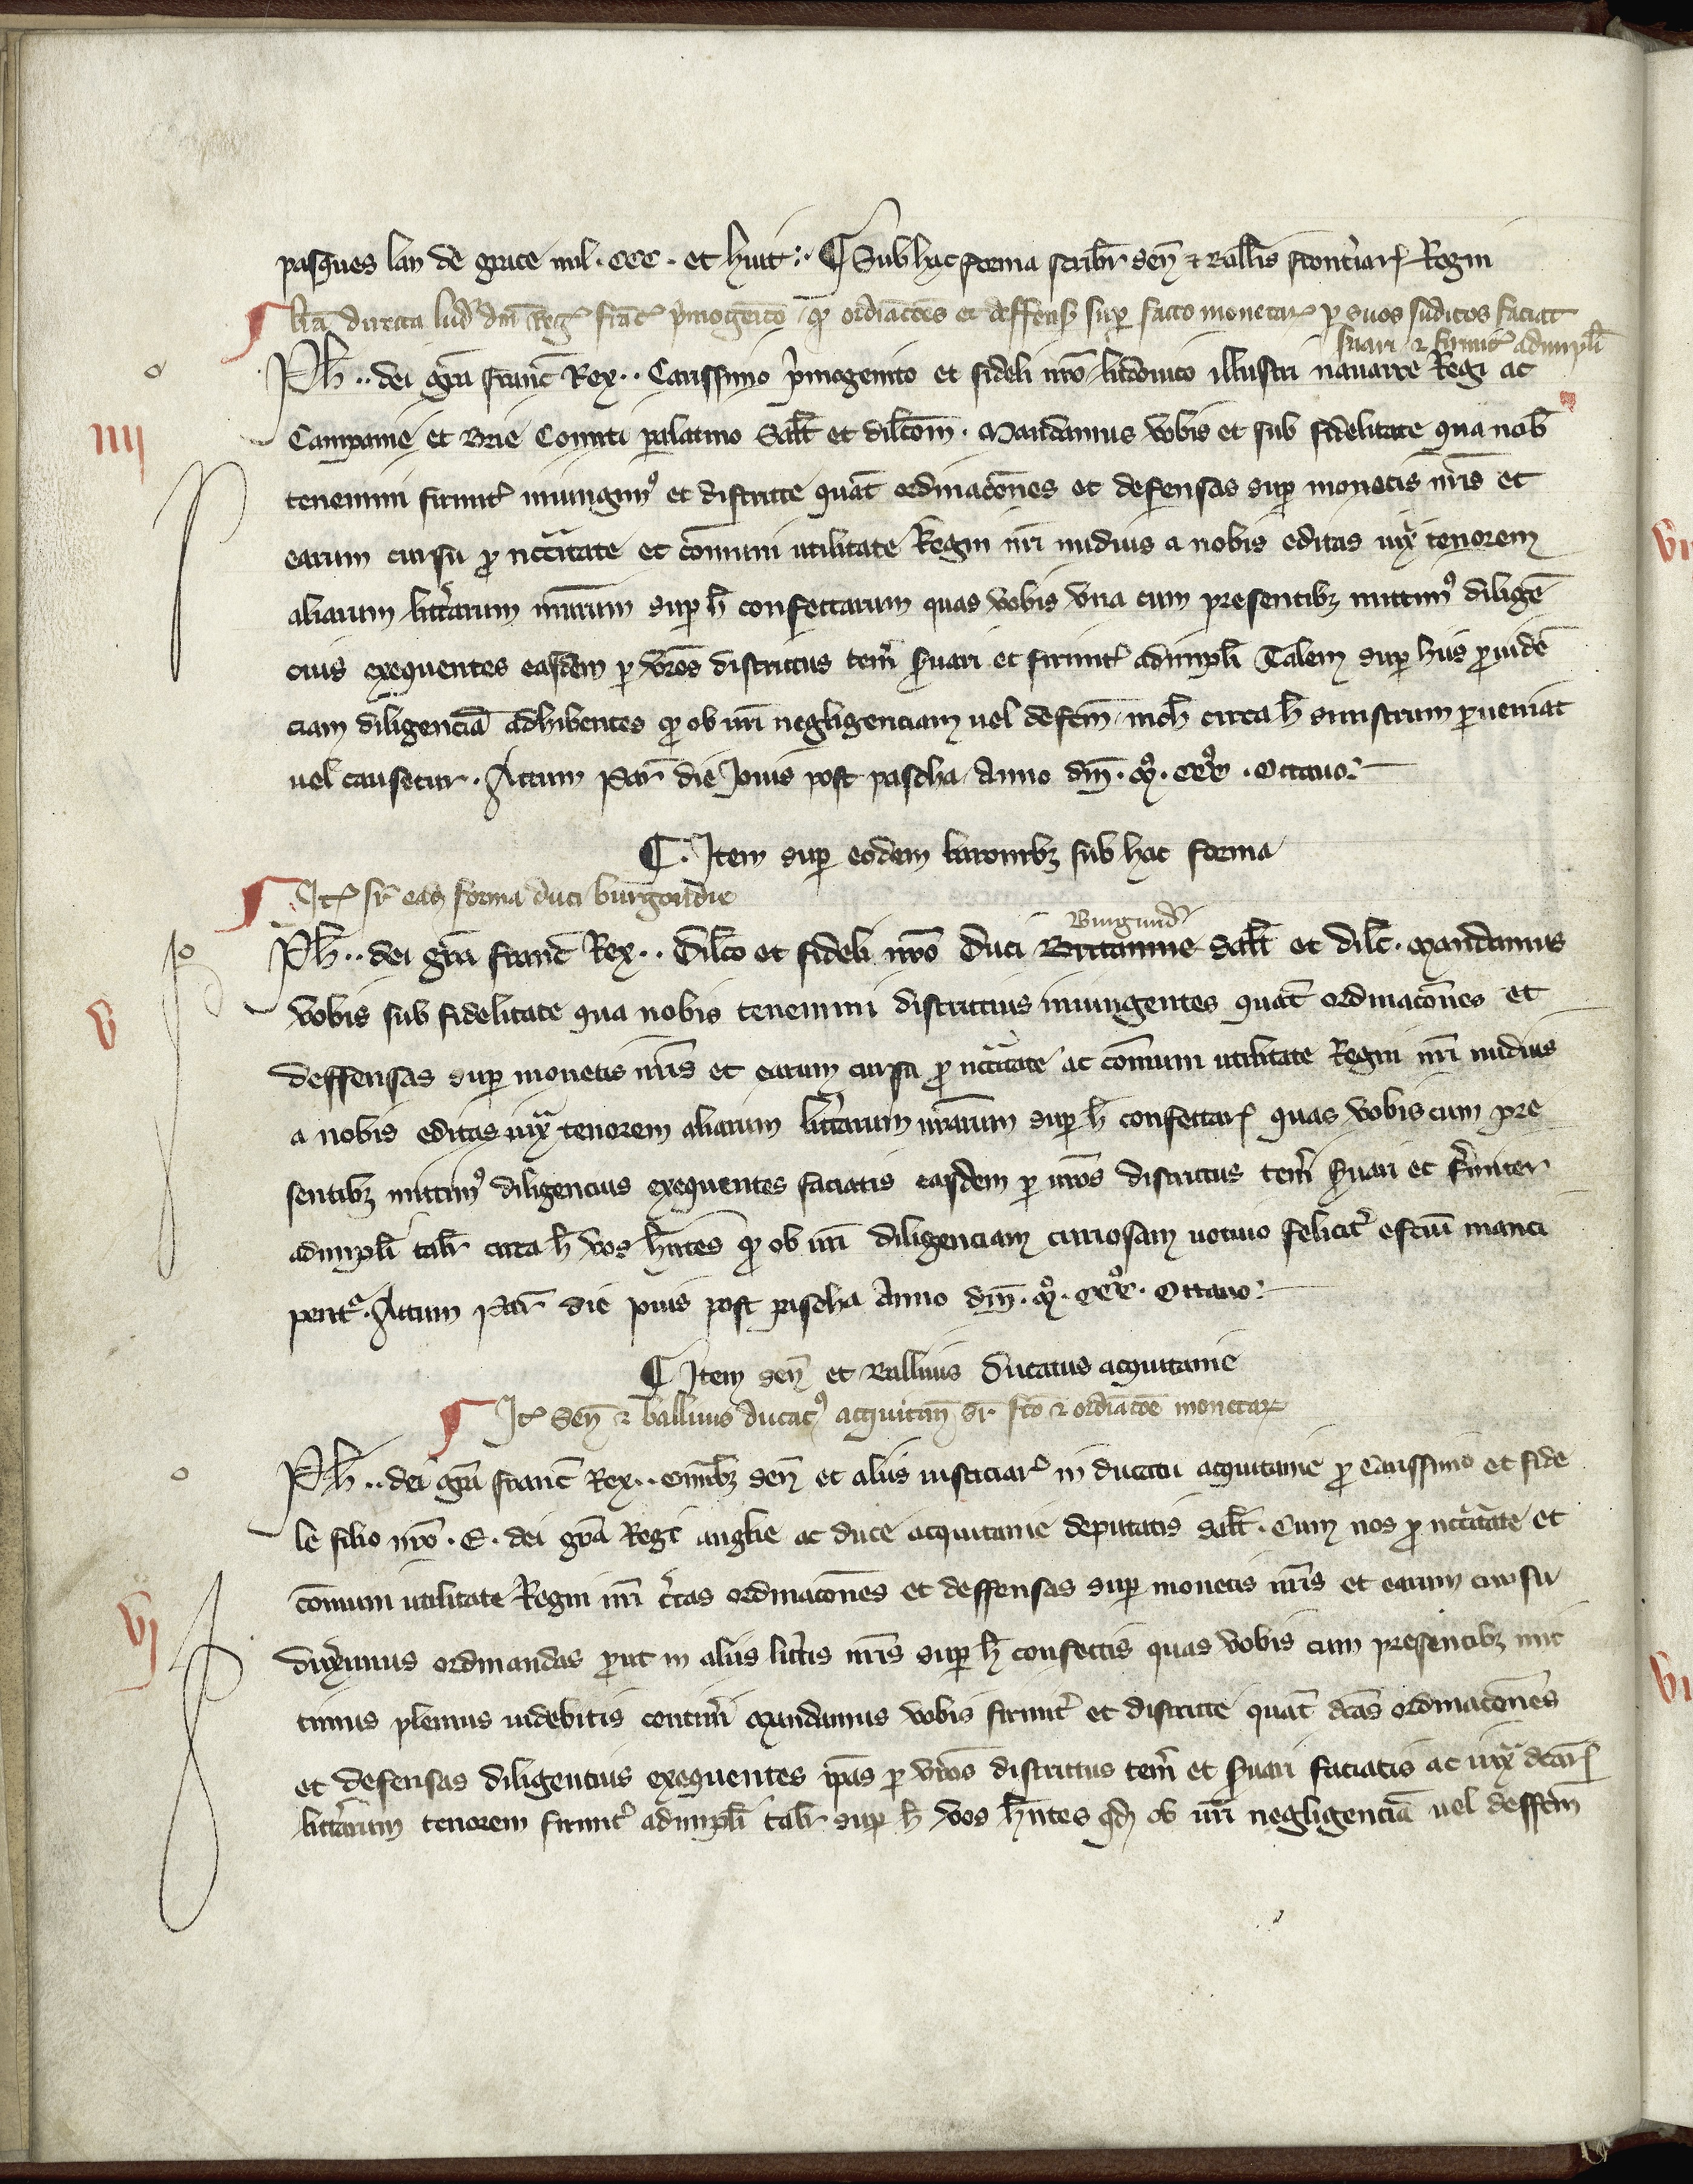 pasques lan de grace mil . ccc . et huit :· ¶ Sub hac forma scribr̄ sen̄ ⁊ Ballis frontiar̄ Regni
¶ lr̄a directa lud' dn̄i Reḡ franc̄ p̄mogenito qꝫ ordiac̄oēs et deffens̄ suꝑ facto monetar̄ ꝑ suos subditos faciat
s̄uari ⁊ firmit̄ adimpl̄i
Ph̄ .. dei gr̄a franc̄ Rex .. Carissimo p̄mogenito et fideli nr̄o ludouico illustri nauarre Regi ac
iiij
Campanie et Brie Comiti palatino Salt̄ et dilc̄om̄ . Mandamus vobis et sub fidelitate qua nob̄
tenemini firmit̄ iniungim⁹ et districte quat̄ ordinac̄ones et defensas suꝑ monetis nr̄is et
earum cursu ꝓ nc̄citate et cōmuni utilitate Regni nr̄i nudius a nobis editas iuxͣ tenorem
aliarum litt̄arum nr̄arum suꝑ h̄ confectarum quas vobis vna cum presentibꝫ mittim⁹ diligē
cius exequentes easdem ꝑ vr̄os districtus ten̄i s̄uari et firmit̄ adimpl̄i Talem suꝑ hiis ꝓuidē
ciam diligenciā adhibentes qꝫ ob vr̄i negligenciam uel defcm̄ nich̄ circa h̄ sinistrum ꝓueniat
uel causetur . Actum Par̄ die Jouis post pascha Anno dn̄i . mͦ . cccͦ . Octauo :
¶ . Item suꝑ eodem baronibꝫ sub hac forma
¶ It̄ sr̄ eadꝫ forma duci burgondie
Burgund'
Ph̄ .. dei gr̄a franc̄ Rex .. Dilc̄o et fideli nr̄o Duci Britannie Salt̄ et dilc̄ . Mandamus
v
vobis sub fidelitate qua nobis tenemini districtius iniungentes quat̄ ordinac̄ones et
deffensas suꝑ monetis nr̄is et earum cursu ꝓ nc̄citate ac cōmuni utilitate Regni nr̄i nudius
a nobis editas iuxͣ tenorem aliarum litt̄arum nr̄arum suꝑ h̄ confectar̄ quas vobis cum pre
sentibꝫ mittim⁹ diligencius exequentes faciatis easdem ꝑ vr̄os districtus ten̄i s̄uari et firmiter
adimpl̄i talr̄ circa h̄ vos h̄ntes qꝫ ob vr̄i diligenciam curiosam uotiuo felicit̄ effc̄ui manci
pent̄ . Actum Par̄ die Jouis post pascha Anno dn̄i . mͦ . cccͦ . Octauo :
¶ Item sen̄ et Balliuis Ducatus acquitanie
¶ It̄ Sen̄ ⁊ balliuis ducat⁹ acquitan̄ sr̄ fc̄o ⁊ ordiac̄oē monetar̄
Ph̄ .. dei gr̄a franc̄ Rex .. omnibꝫ sen̄ et aliis iusticiar̄ in ducatu acquitanie ꝓ Carissimo et fide
le filio nr̄o . E . dei gr̄a Rege anglie ac duce acquitanie deputatis salt̄ . Cum nos ꝓ nc̄citate et
vj
cōmuni utilitate Regni nr̄i c̄tas ordinac̄ones et deffensas suꝑ monetis nr̄is et earum cursu
duxerimus ordinandas ꝓut in aliis litt̄is nr̄is suꝑ h̄ confectis quas vobis cum presentibꝫ mit
timus plenius uidebitis contin̄i Mandamus vobis firmit̄ et districte quat̄ dc̄as ordinac̄ones
et defensas diligencius exequentes ip̄as ꝑ vr̄os districtus ten̄i et s̄uari faciatis ac iuxͣ dc̄ar̄
litt̄arum tenorem firmit̄ adimpl̄i talr̄ suꝑ h̄ vos h̄ntes qd̄ ob vr̄i negligenciā uel deffcm̄